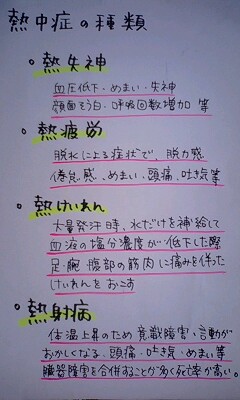 熱中症の種類
・熱失神
血圧低下・めまい・失神
顔面そう白・呼吸回数増加 等
・熱疲労
脱水による症状で、脱力感
倦怠感、めまい、頭痛、吐き気等
・熱けいれん
大量発汗時、水だけを補給して
血液の塩分濃度が低下した際
足・腕・腹部の筋肉に痛みを伴った
けいれんをおこす
・熱射病
体温上昇のため意識障害・言動が
おかしくなる、頭痛・吐き気・めまい等
臓器障害を合併することが多く死亡率が高い。